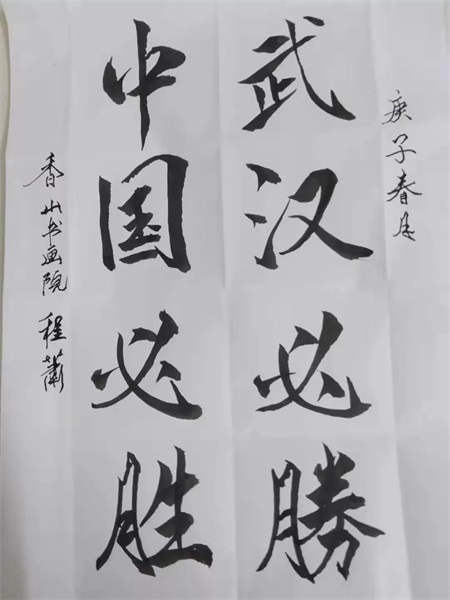 庚子春月
武汉必勝
中国必胜
香山书画院 程蕭